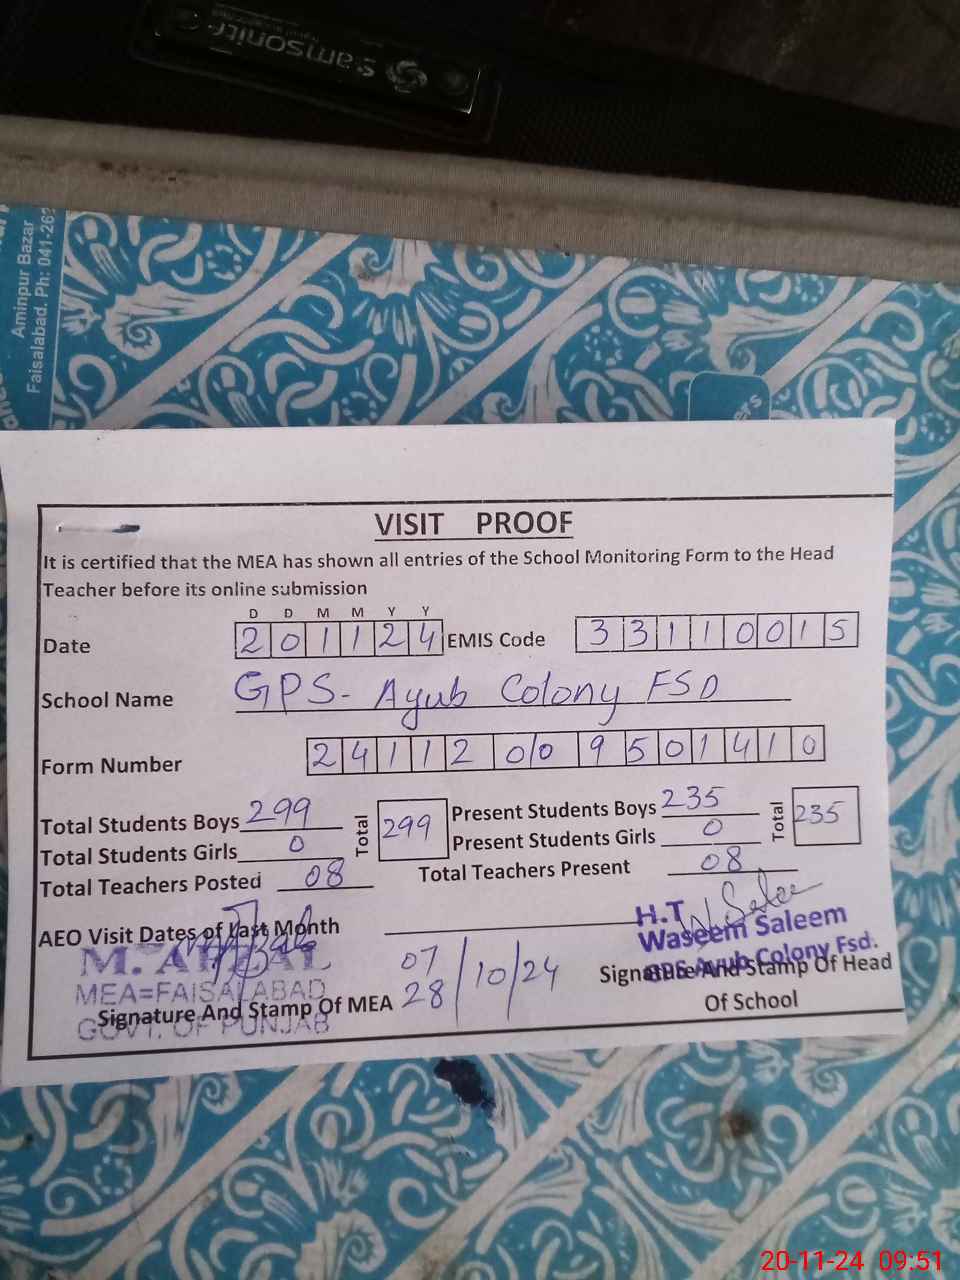 samsonite
Aminpur Bazar
Faisalabad. Ph: 041-263
VISIT PROOF
It is certified that the MEA has shown all entries of the School Monitoring Form to the Head
Teacher before its online submission
D D M M Y Y
Date 2 0 1 1 2 4 EMIS Code 3 3 1 1 0 0 1 5
School Name GPS- Ayub Colony FSD
Form Number 2 4 1 1 2 0/0 9 5 0 1 4 1 0
Total Students Boys 299 Total 299 Present Students Boys 235 Total 235
Total Students Girls 0 Present Students Girls 0
Total Teachers Posted 08 Total Teachers Present 08
AEO Visit Dates of Last Month 07 28 /10/24
M. AFZAL
MEA=FAISALABAD
GOVT. OF PUNJAB
Signature And Stamp Of MEA
H.T
Waseem Saleem
GPS Ayub Colony Fsd.
Signature And Stamp Of Head
Of School
20-11-24 09:51